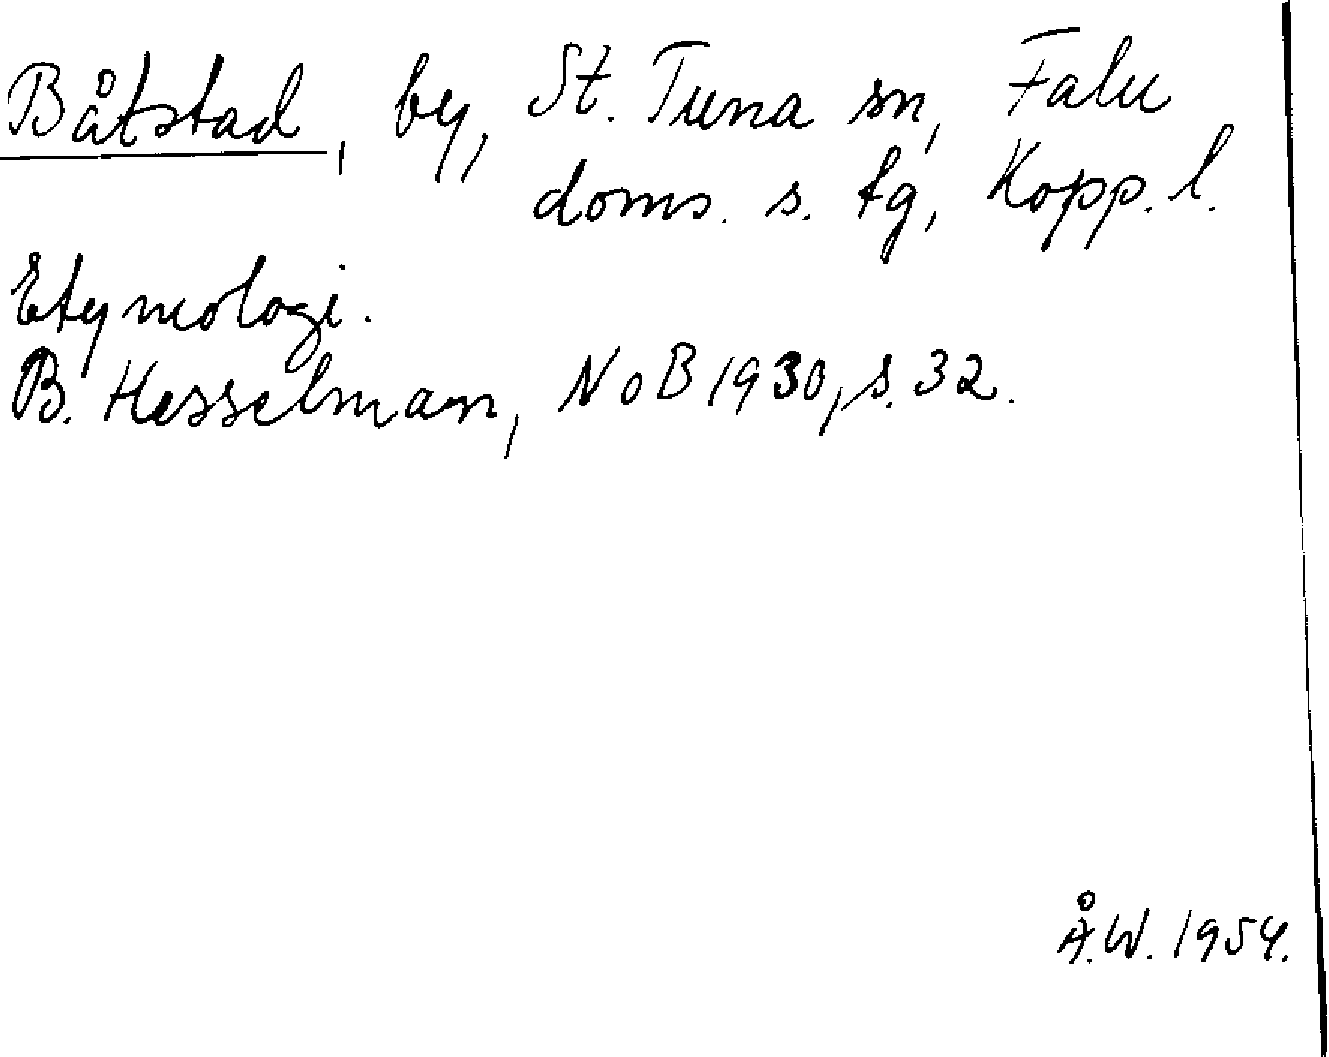 Båtstad, by, St. Tuna sn, Falu
doms. s. tg, Kopp. l.
Etymologi.
B. Hesselman, NoB 1930, s. 32.
Å.W. 1954.